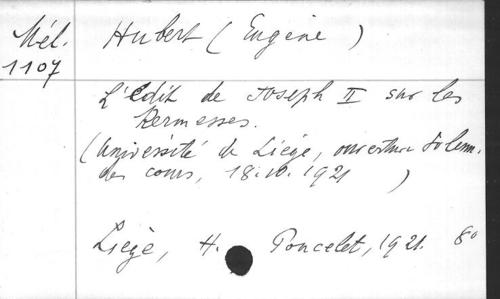 Mél. Hubert (Eugène)
1107
L'Edit de Joseph II sur les
Kermesses.
(Université de Liége, ouverture solenn.
des cours, 18.10.1921)
Liége, H. Poncelet, 1921. 8°